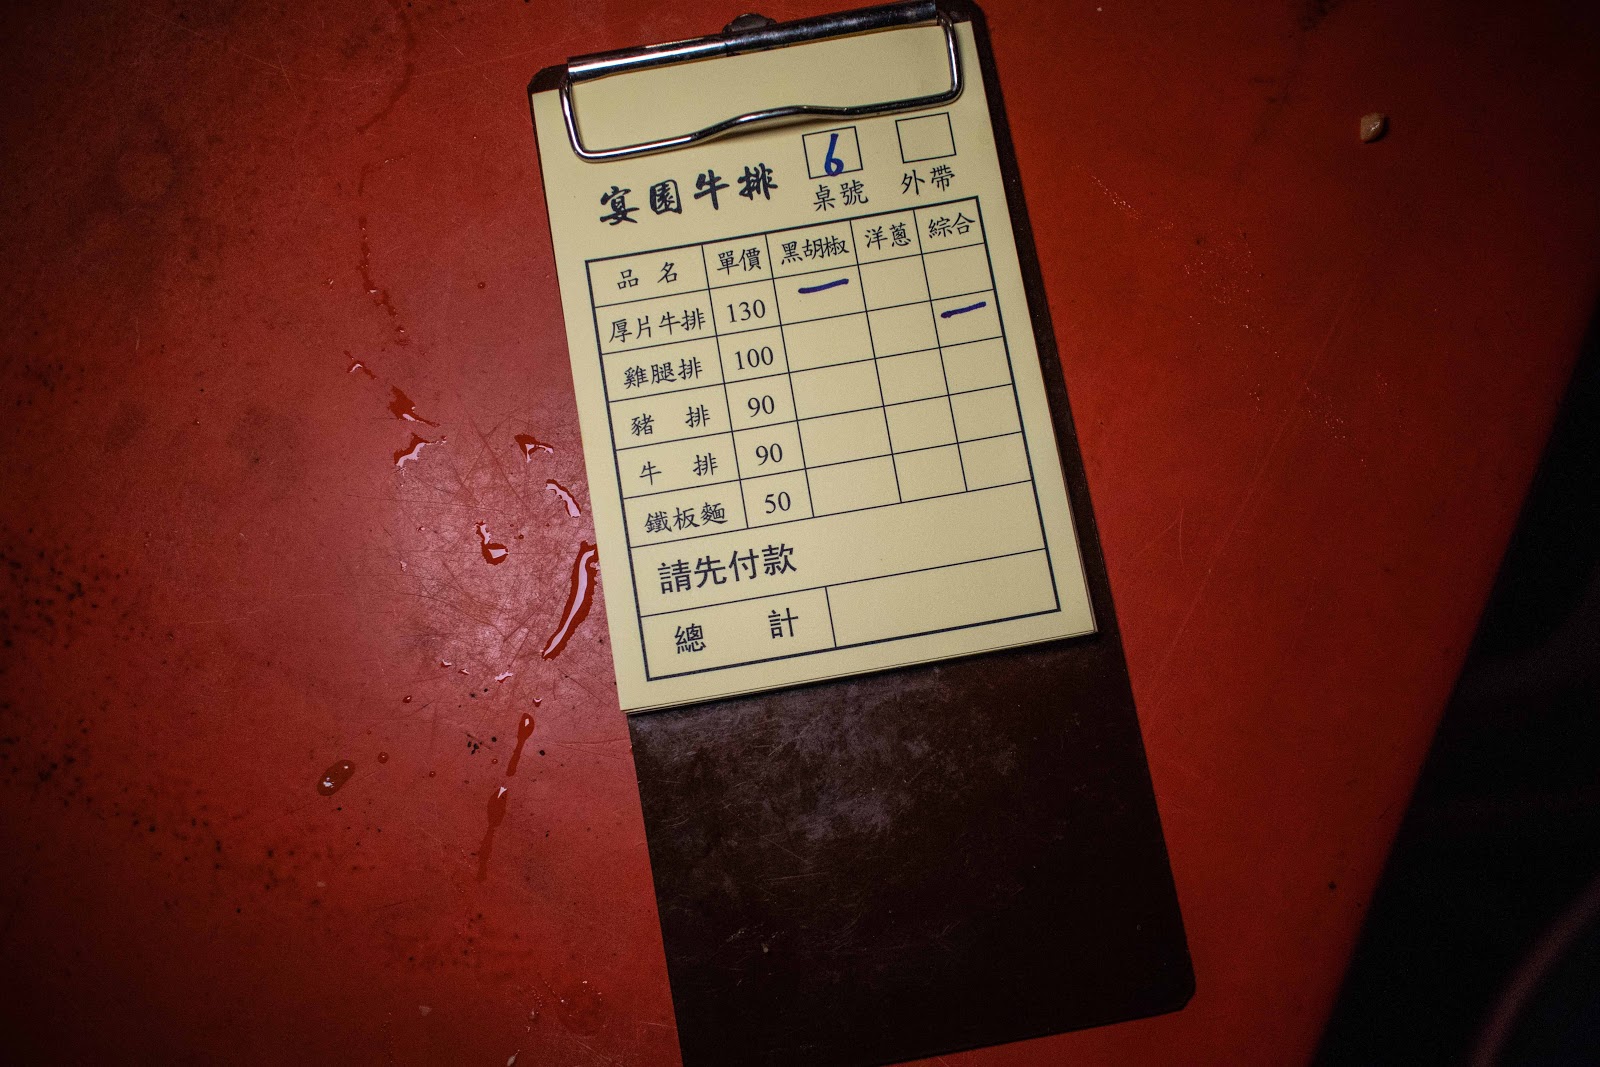 6
宴園牛排 桌號 外帶
品名 單價 黑胡椒 洋蔥 綜合
厚片牛排 130 一
雞腿排 100 一
豬排 90
牛排 90
鐵板麵 50
請先付款
總計